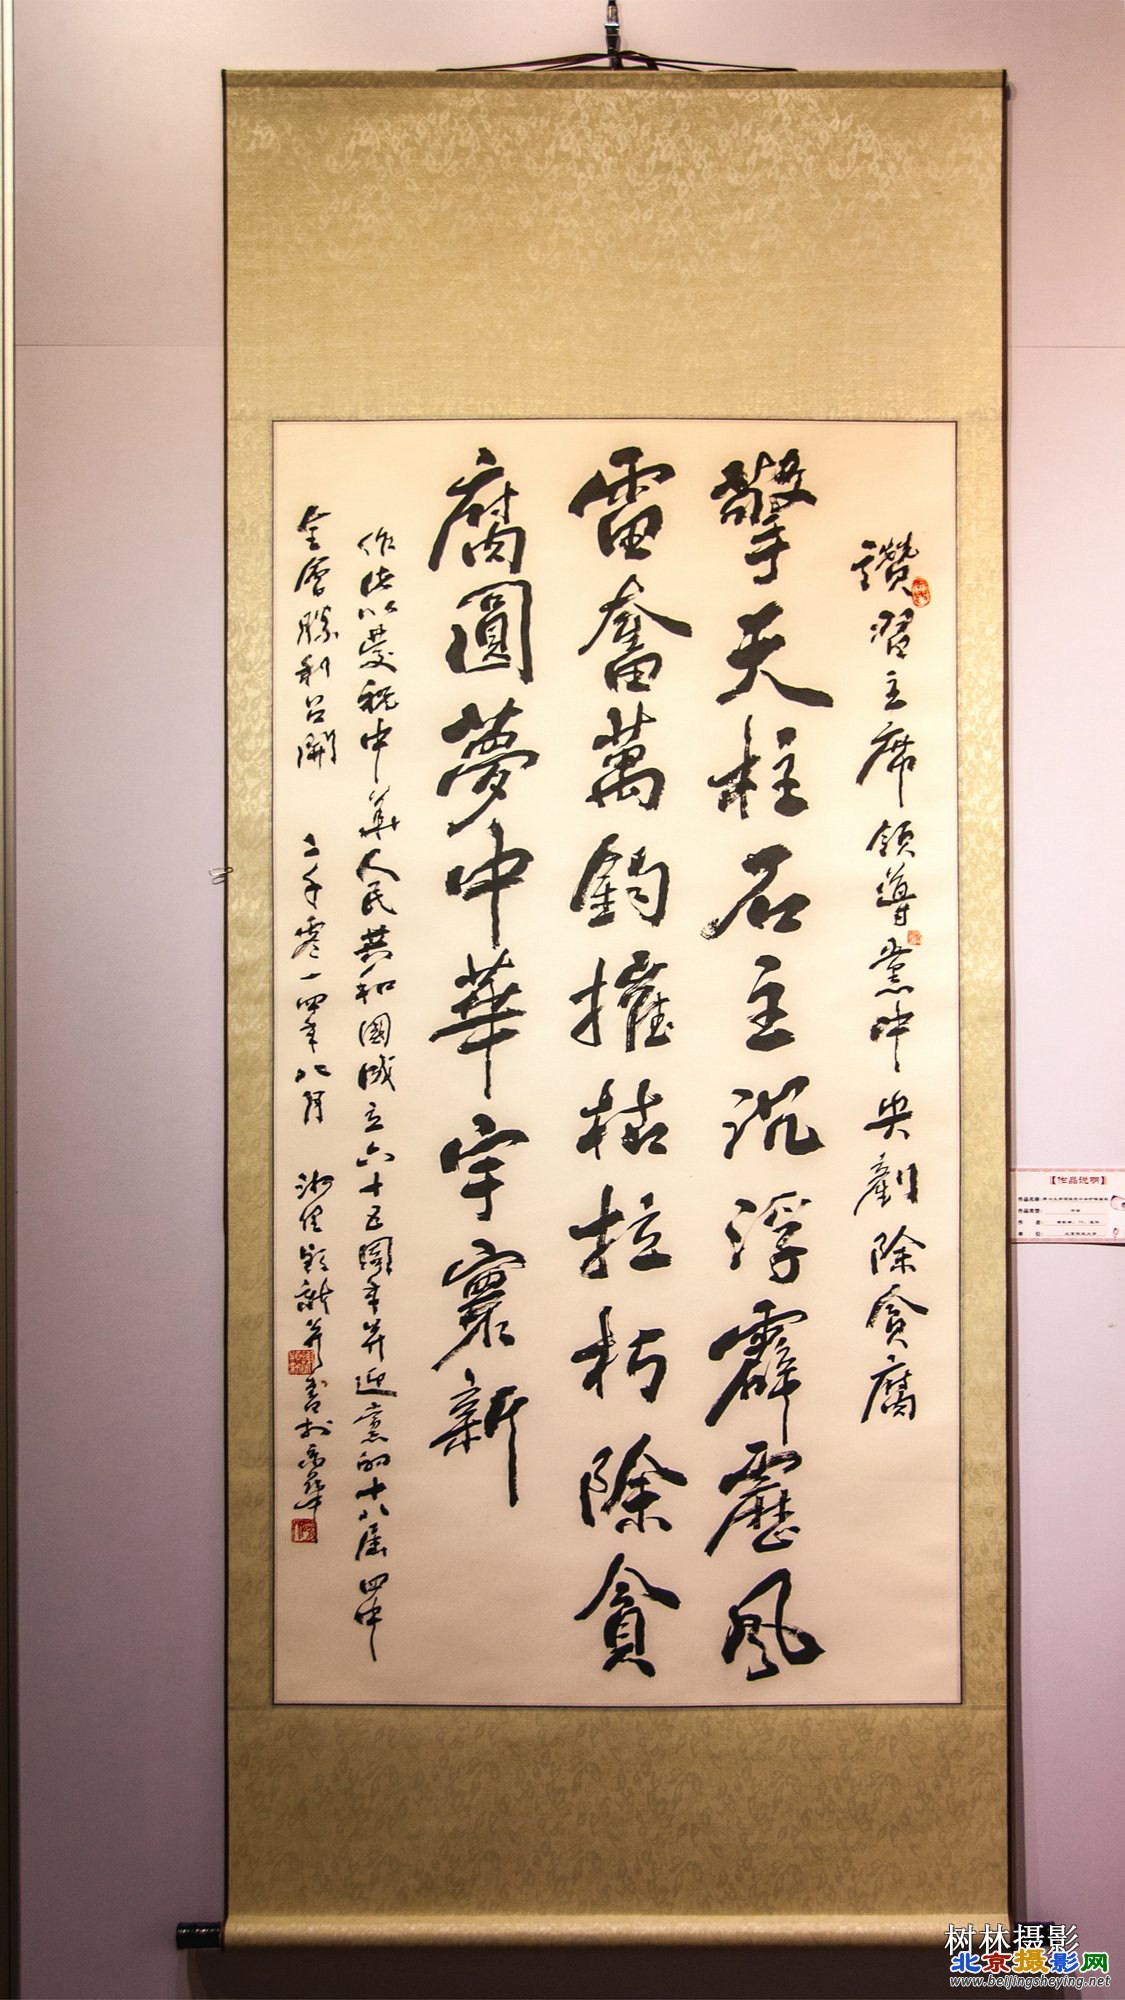 讚習主席領導黨中央剷除貪腐
擎天柱石主沉浮霹靂風
雷奮萬鈞摧枯拉朽除貪
腐圓夢中華宇寰新
作此以慶祝中華人民共和國成立六十五周年并迎黨的十八届四中
全會勝利召開 二千零一四年八月
書於京華
【作品说明】
树林摄影
北京摄影网
www.beijingsheying.net